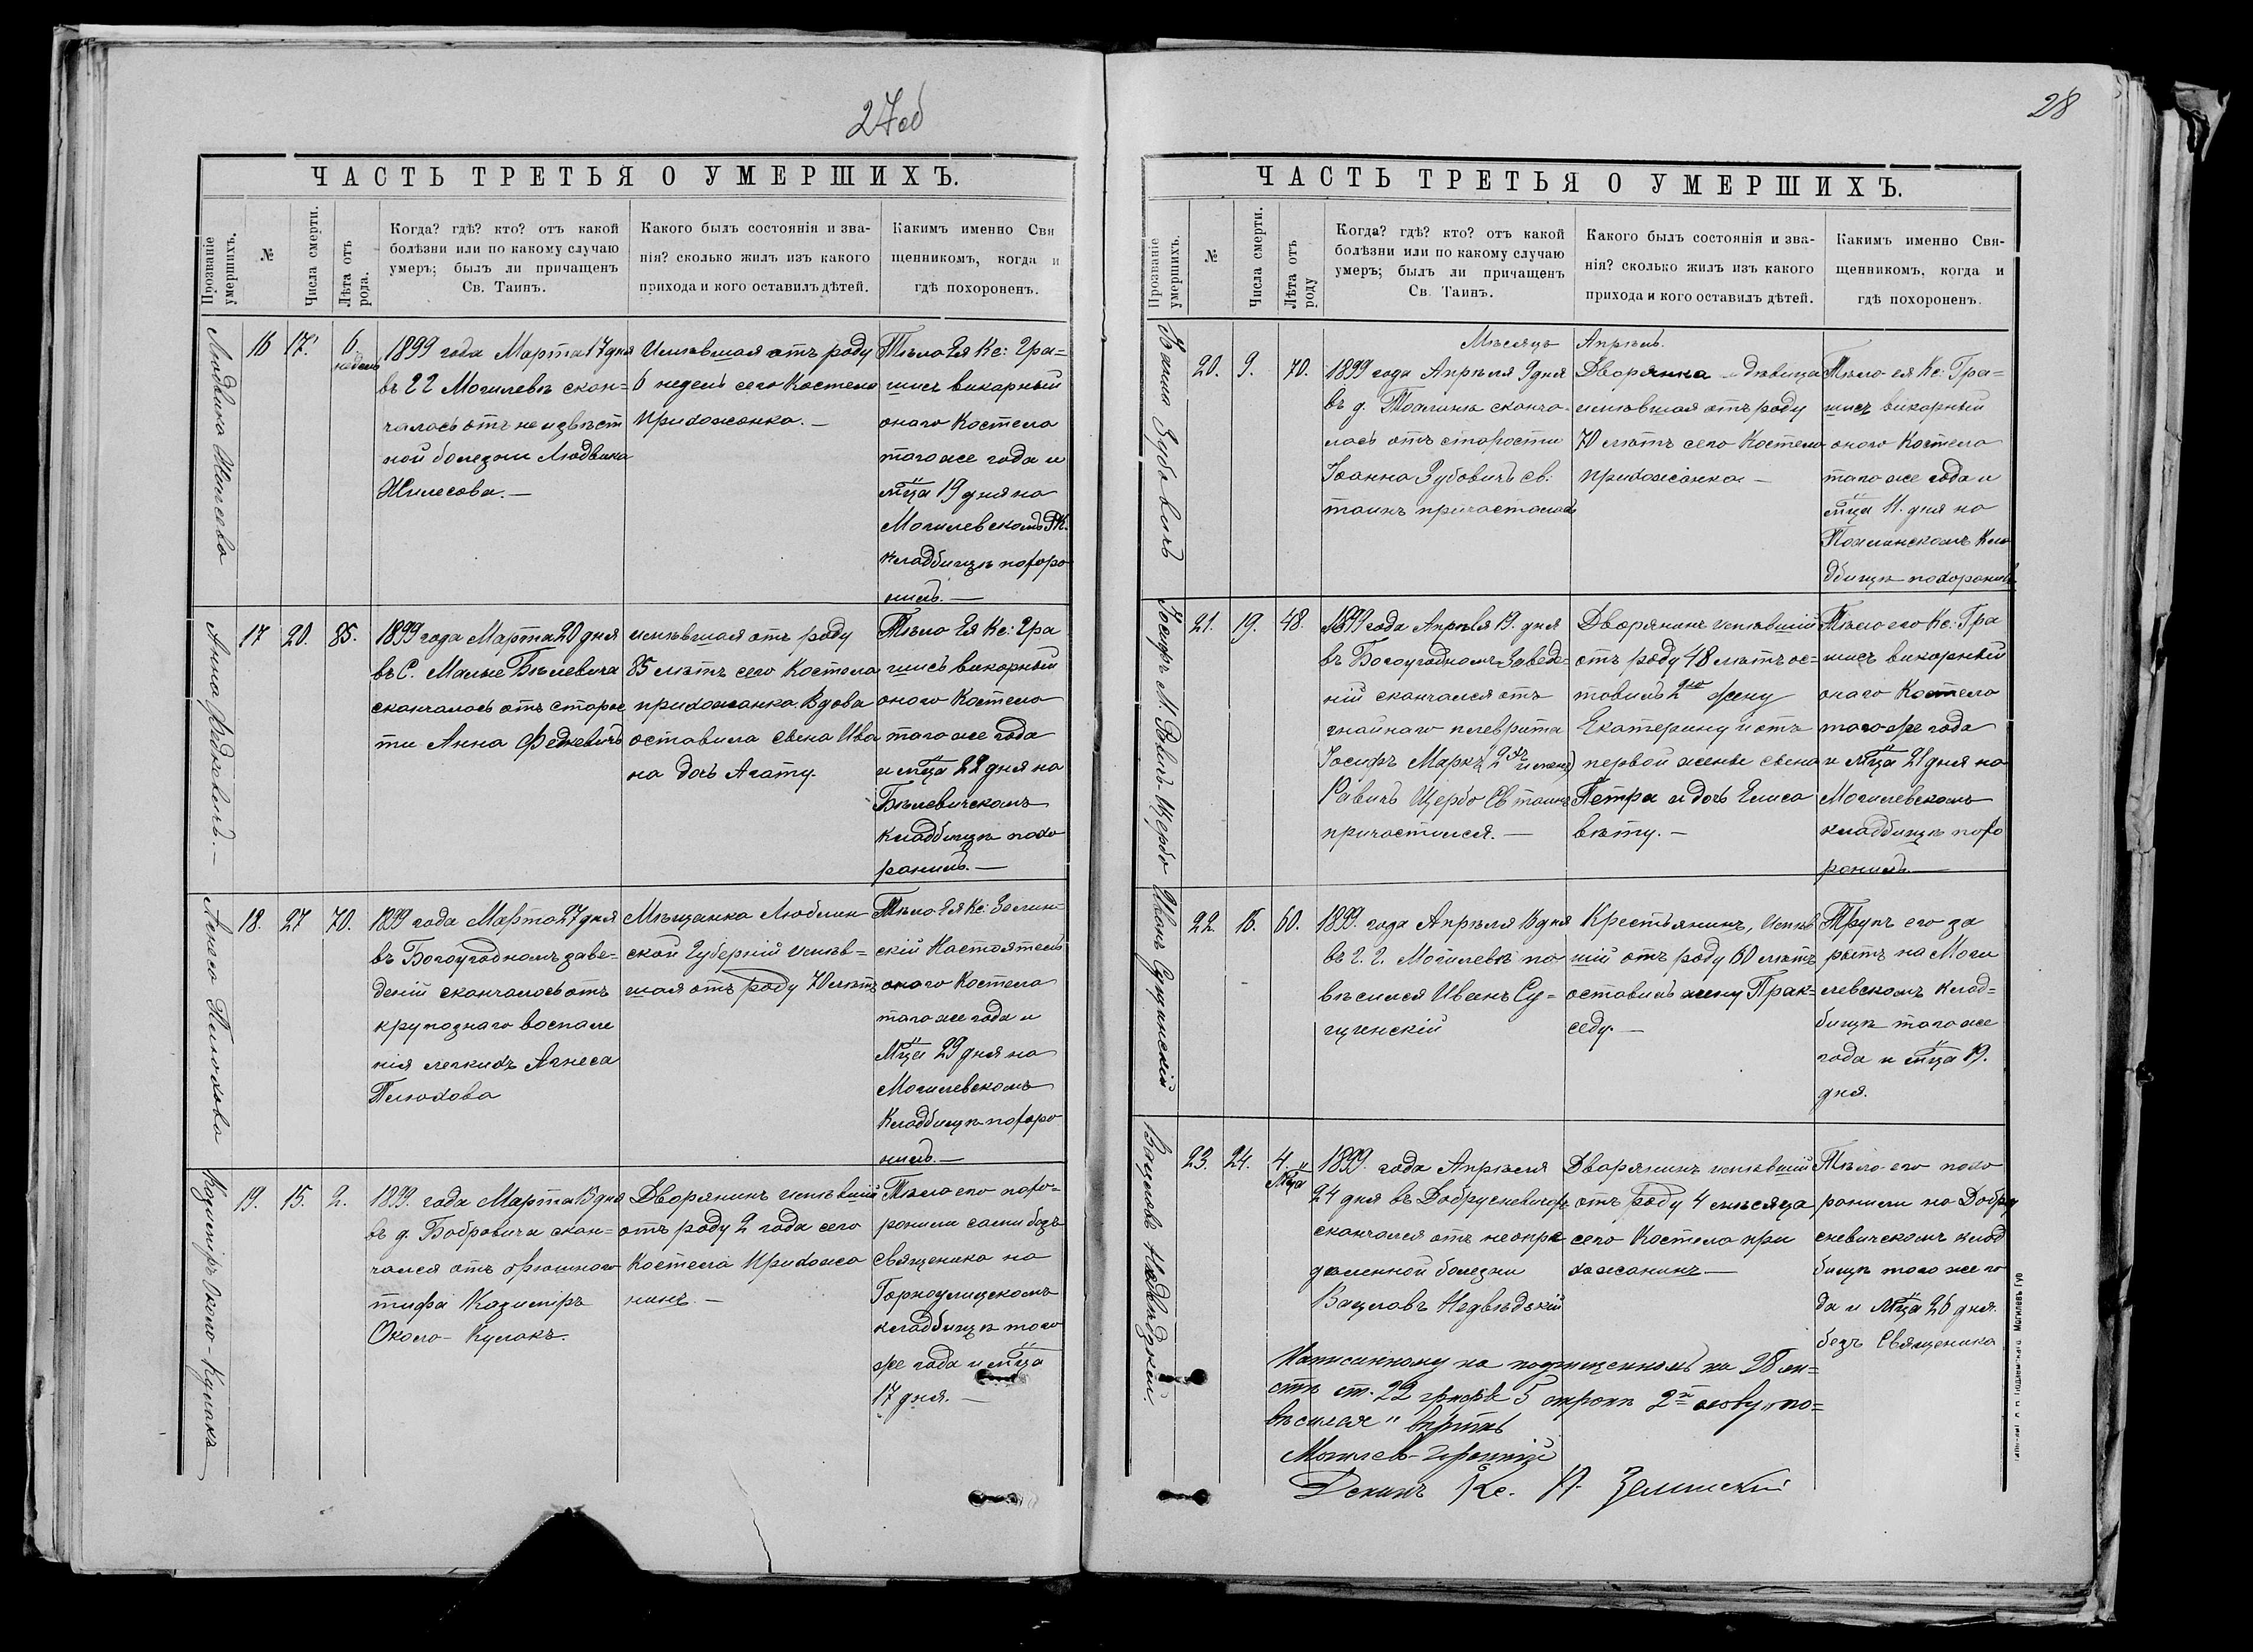 27об
ЧАСТЬ ТРЕТЬЯ О УМЕРШИХЪ.
Прозваніе умершихъ.
№
Числа смерти.
Лѣта отъ рода.
Когда? гдѣ? кто? отъ какой
болѣзни или по какому случаю
умеръ; былъ ли причащенъ
Св. Таинъ.
Какого былъ состоянія и зва-
нія? сколько жилъ изъ какого
прихода и кого оставилъ дѣтей.
Какимъ именно Свя
щенникомъ, когда и
гдѣ похороненъ.
Людвика
16
17.
6.
недель
1899 года Марта 17 дня
въ Могилевѣ скон=
чалась отъ неизвѣст
ной болезни Людвика
Имѣвшая отъ роду
6 недель сего Костела
прихожанка.—
Тѣло Ея Кс: Гра=
викарный
онаго Костела
того же года и
мца 19 дня на
Могилевскомъ Р.К.
кладбищѣ похоро
нилъ.—
Анна Федкевичъ.—
17
20.
85.
1899 года Марта 20 дня
въ С. Малые Бѣлевича
скончалась отъ старос
ти Анна Федкевичъ
имѣвшая отъ роду
85 лѣтъ сего Костела
прихожанка. Вдова
оставила сына Ива
на дочъ Агату.
Тѣло Ея Кс: Гра
викарный
онаго Костела
того же года
и мца 22 дня на
Бѣлевическомъ
кладбищѣ похо
ронилъ.—
Агнеса Пелюхова
18.
27
70.
1899 года Марта 27 дня
въ Богоугодномъ заве=
деніи скончалась отъ
крупознаго воспале
нія легкихъ Агнеса
Пелюхова
Мѣщанка Люблин
ской Губерніи имѣв=
шая отъ роду 70 лѣтъ
Тѣло Ея Кс: Зелин=
скій Настоятель
онаго Костела
того же года и
Мца 29 дня на
Могилевскомъ
Кладбищѣ похоро
нилъ.—
Казимиръ Около-Кулакъ
19.
15.
2.
1899. года Марта 15 дня
въ д. Бобровича скон=
чался отъ брюшного
тифа Казимиръ
Около- Кулакъ.
Дворянинъ имѣвшій
отъ роду 2 года сего
Костела Прихожа
нинъ.—
Тѣло его похо=
ронили сами безъ
Священика на
кладбищѣ того
же года и мца
17 дня.—
28
ЧАСТЬ ТРЕТЬЯ О УМЕРШИХЪ.
Прозваніе умершихъ.
№
Числа смерти.
Лѣта отъ роду
Когда? гдѣ? кто? отъ какой
болѣзни или по какому случаю
умеръ; былъ ли причащенъ
Св. Таинъ.
Какого былъ состоянія и зва-
нія? сколько жилъ изъ какого
прихода и кого оставилъ дѣтей.
Какимъ именно Свя-
щенникомъ, когда и
гдѣ похороненъ.
Мѣсяцъ Апрѣль.
Іоанна Зубовичъ
20.
9.
70.
1899 года Апрѣля 9 дня
въ д. сконча=
лась отъ старости
Іоанна Зубовичъ св:
таинъ причасталась
Дворянка дѣвица
имѣвшая отъ роду
70 лѣтъ сего Костела
прихожанка—
Тѣло ея Кс: Гра=
викарный
онаго Костела
того же года и
мца 11. дня на
Кла
дбищѣ похоронилъ
Іосифъ М. Равичъ-Щербо
21.
19.
48.
1899 года Апрѣля 19. дня
въ Богоугодномъ Заведе=
ній скончался отъ
гнойнаго плеврита
Іосифъ Маркъ (2хъ именъ)
Равичъ Щербо Св таинъ
причастился.—
Дворянинъ имѣвшій
отъ роду 48 лѣтъ ос=
тавилъ 2ую жену
Екатерину и отъ
первой жены сына
Петра и дочъ Елиса
вѣту.—
Тѣло его Кс: Гра
викарный
онаго Костела
того же года
и мца 21 дня на
Могилевскомъ
кладбищѣ похо
ронилъ.—
Иванъ Сущинскій
22.
60.
1899. года Апрѣля дня
въ Г. Г. Могилевѣ по
вѣсился Иванъ Су=
щинскій
Крестьянинъ, имѣв
шій отъ роду 60 лѣтъ
оставилъ жену Прак=
седу.—
Трупъ его за
рытъ на Моги
левскомъ клад=
бищѣ того же
года и мца 19.
дня.
Вацлавъ Недвѣдзкій.
23.
24.
4.
мца
1899. года Апрѣля
24 дня въ Добрусневичахъ
скончался отъ неопре
деленной болезни
Вацлавъ Недвѣдзкій
Дворянинъ имѣвшій
отъ роду 4 мѣсяца
сего Костела при
хожанинъ—
Тѣло его похо
ронили на Добру
сневичскомъ клад
бищѣ того же го
да и мца 26 дня.
безъ Священика
Написанному на подчищенномъ на 28 ли=
стѣ ст. 22 графѣ 5 строкѣ 2й слову „по=
вѣсился" вѣрить
Могилев-
Деканъ Кс. Зелинскій